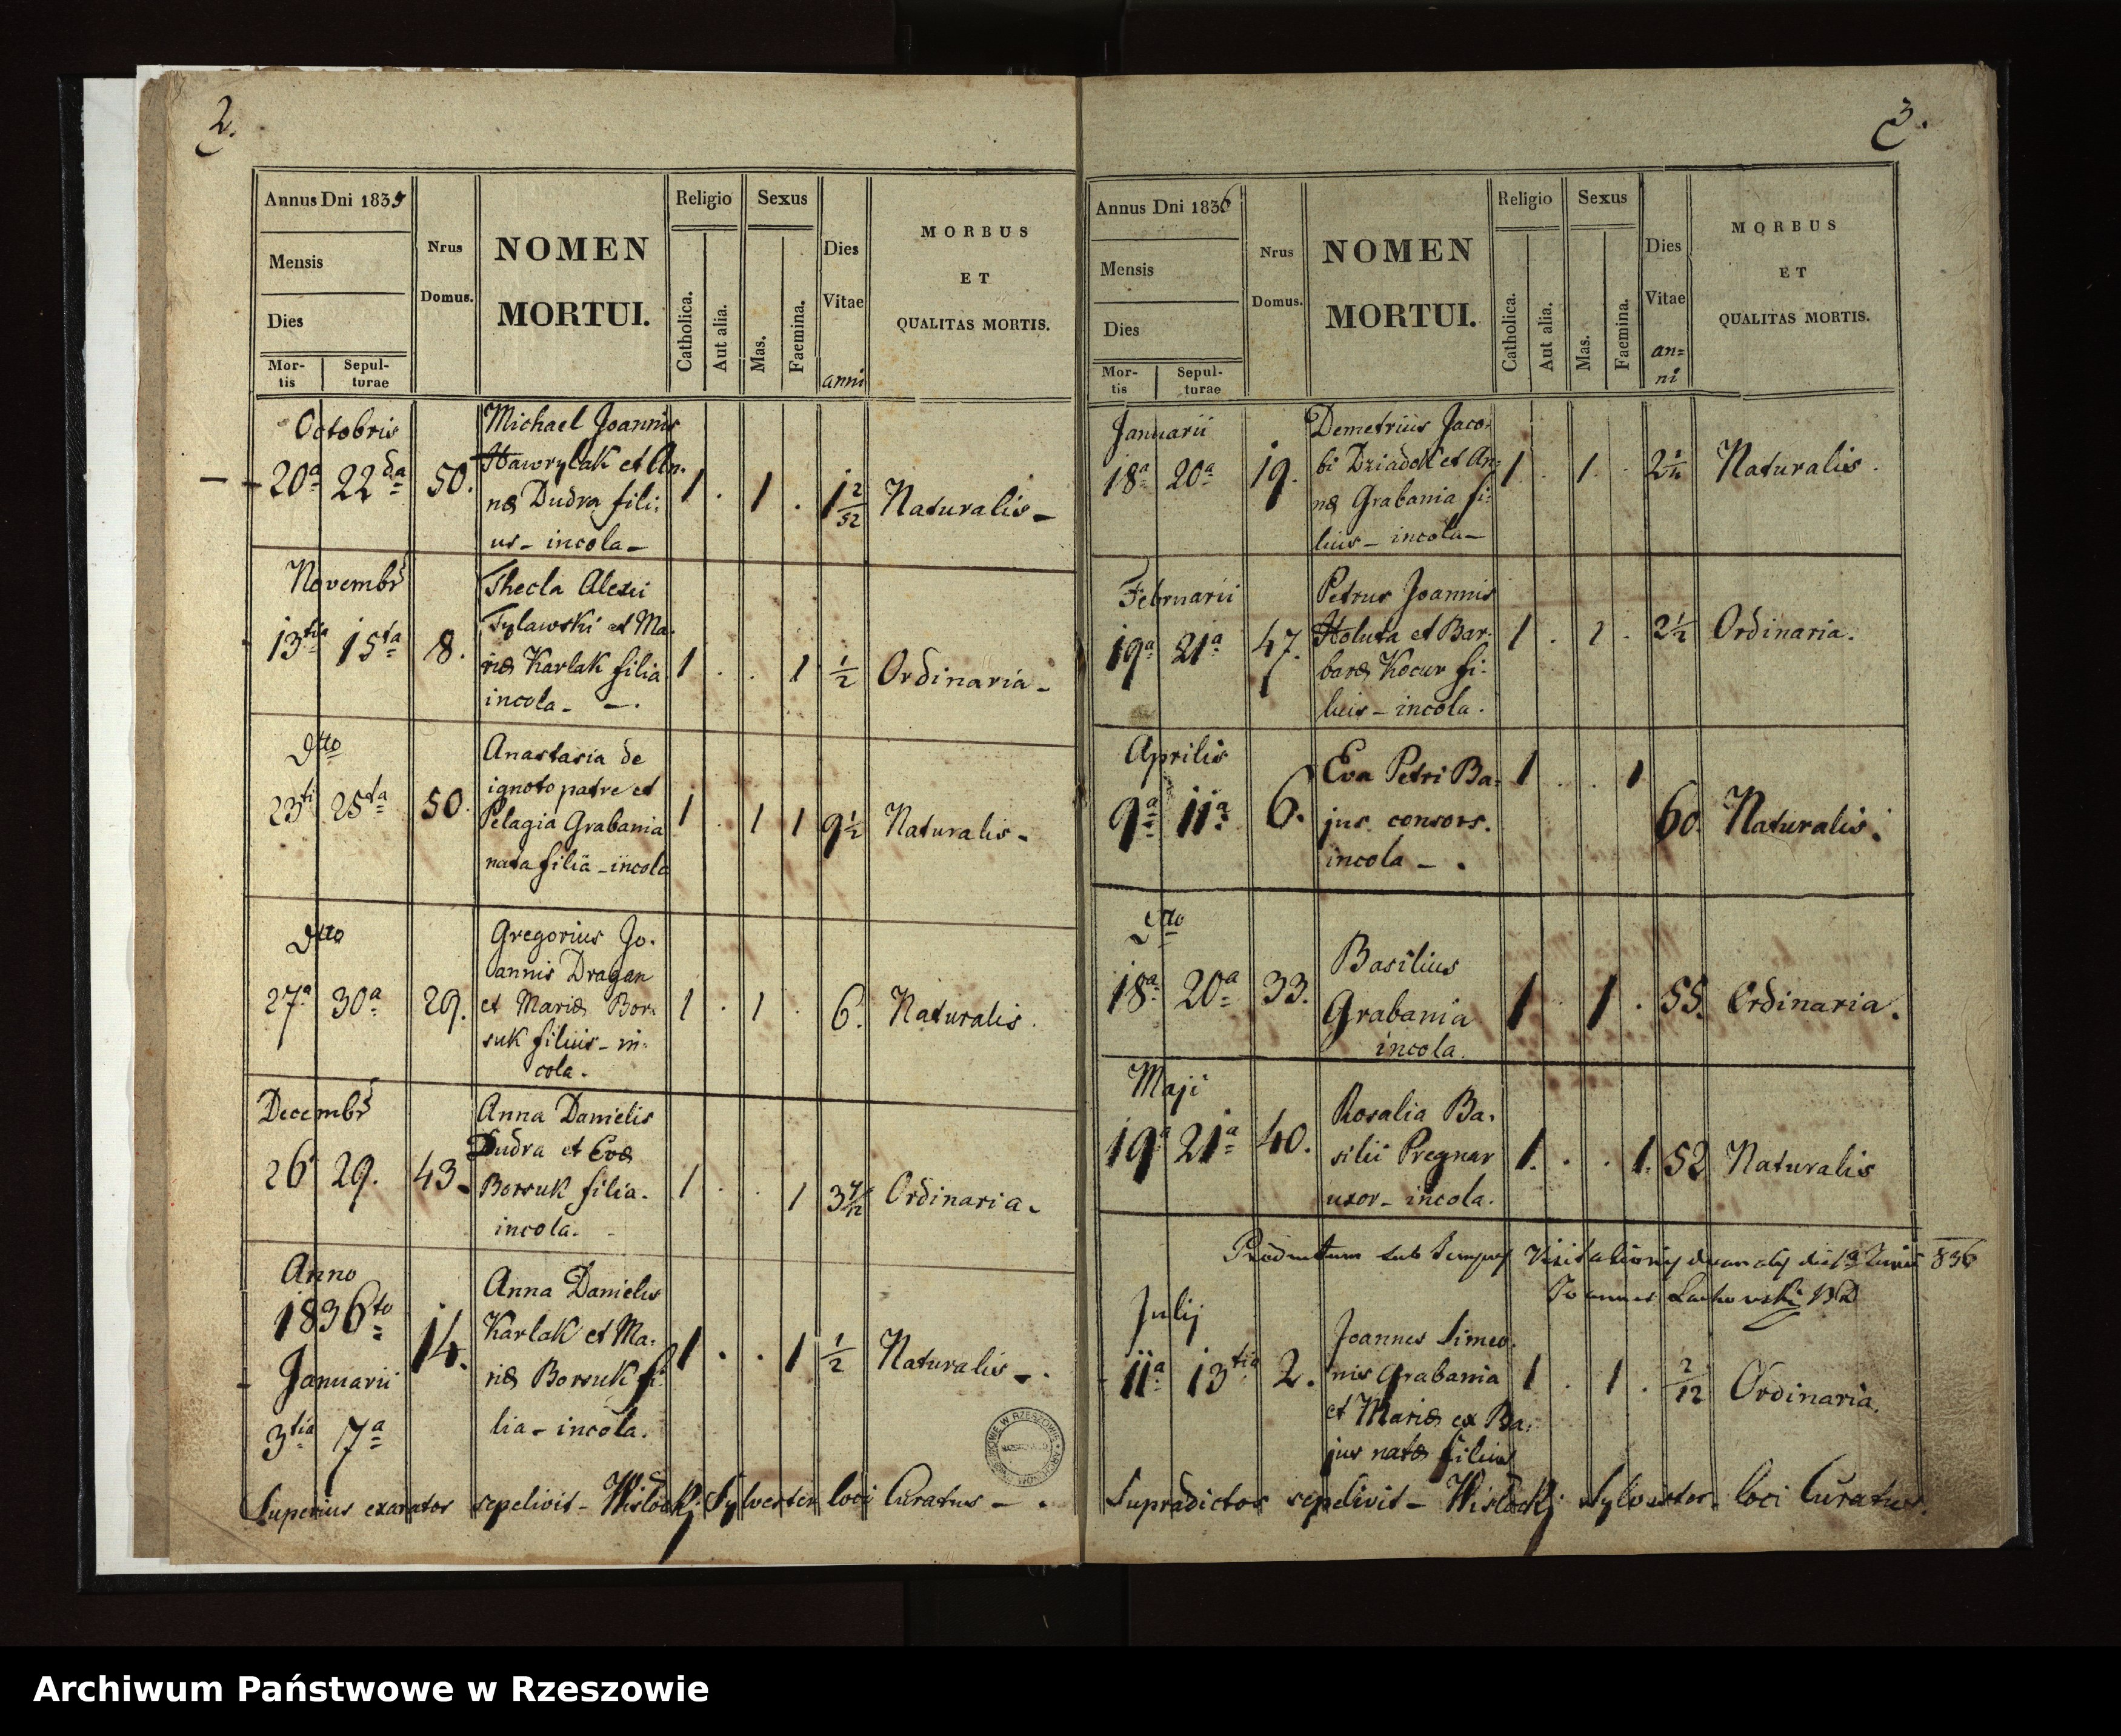 2.
Annus Dni 1835
Mensis
Dies
Mor-
tis
Sepul-
turae
Nrus
Domus.
NOMEN
MORTUI.
Religio
Catholica.
Aut alia.
Sexus
Mas.
Faemina.
Dies
Vitae
anni
MORBUS
ET
QUALITAS MORTIS.
Octobris
20a 22da 50.
Michael Joannis
Hawrylak et An-
næ Dudra fili:
us - incola -
1 . 1 . 1 2/52 Naturalis -
Novembr
13tia 15ta 8.
Thecla Alexii
Tylawski et Ma-
riæ Karlak filia
incola - - .
1 . . 1 1/2 Ordinaria -
Dtto
23ti 25ta 50.
Anastasia de
ignoto patre et
Pelagia Grabania
nata filia - incola
1 . 1 1 9 1/2 Naturalis -
Dtto
27a 30a 29.
Gregorius Jo-
annis Dragan
et Mariæ Bor-
suk filius - in-
cola.
1 . 1 . 6. Naturalis.
Decembr
26 29. 43.
Anna Danielis
Dudra et Evæ
Borsuk filia.
incola.
1 . . 1 Ordinaria.
Anno
1836to
Januarii
3tia 7a
14.
Anna Danielis
Karlak et Ma-
riæ Borsuk fi-
lia - incola.
1 . . 1 1/2 Naturalis - .
Superius exaratos sepelivit - Wisłocki Sylvester loci Curatus - .
3.
Annus Dni 1836
Mensis
Dies
Mor-
tis
Sepul-
turae
Nrus
Domus.
NOMEN
MORTUI.
Religio
Catholica.
Aut alia.
Sexus
Mas.
Faemina.
Dies
Vitae
an=
ni
MORBUS
ET
QUALITAS MORTIS.
Januarii
18a 20a 19.
Demetrius Jaco-
bi Dziadok et An-
næ Grabania fi-
lius - incola -
1 . 1 . Naturalis.
Februarii
19a 21a 47.
Petrus Joannis
Holuta et Bar-
baræ Kocur fi-
lius - incola.
1 . 1 . 2 1/2 Ordinaria.
Aprilis
9a 11a 6.
Eva Petri Ba-
jus consors.
incola - .
1 . . 1 60. Naturalis.
Dtto
18a 20a 33.
Basilius
Grabania
incola.
1 1 . 55. Ordinaria.
Maji
19a 21a 40.
Rosalia Ba-
silii Pregnar
uxor - incola.
1. . . 1. 52 Naturalis
Productum sub Visitationis die Junii 836
Joannes
Julij
11a 13tia 2.
Joannes Simeo-
nis Grabania
et Mariæ ex Ba-
jus natæ filius
1 . 1 . 2/12 Ordinaria.
Supradictos sepelivit - Wisłocki Sylvester loci Curatus.
Archiwum Państwowe w Rzeszowie